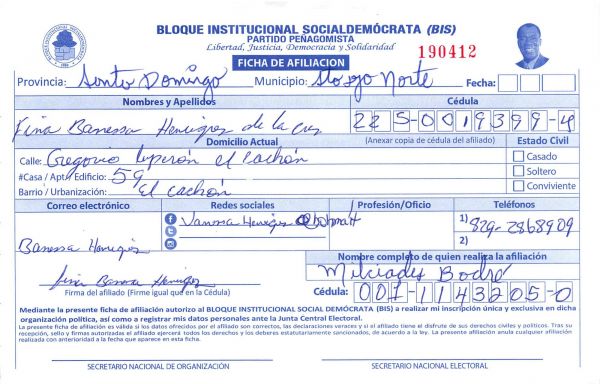 BLOQUE INSTITUCIONAL SOCIALDEMÓCRATA (BIS)
PARTIDO PEÑAGOMISTA
Libertad, Justicia, Democracia y Solidaridad
190412
FICHA DE AFILIACION
Provincia: Santo Domingo Municipio: Sto Dgo Norte Fecha:
Nombres y Apellidos Cédula
Banessa de la Cruz 225-0019399-4
Domicilio Actual (Anexar copia de cédula del afiliado) Estado Civil
Calle: Gregorio Luperón el cachón Casado
#Casa / Apt / Edificio: 59 Soltero
Barrio / Urbanización: El cachón Conviviente
Correo electrónico Redes sociales Profesión/Oficio Teléfonos
Vanessa 1) 829-2868909
2)
Banessa
Nombre completo de quien realiza la afiliación
Milciades Bodré
Firma del afiliado (Firme igual que en la Cédula) Cédula: 001-1143205-0
Mediante la presente ficha de afiliación autorizo al BLOQUE INSTITUCIONAL SOCIAL DEMÓCRATA (BIS) a realizar mi inscripción única y exclusiva en dicha
organización política, así como a registrar mis datos personales ante la Junta Central Electoral.
La presente ficha de afiliación es válida si los datos ofrecidos por el afiliado son correctos, las declaraciones veraces y si el afiliado tiene el disfrute de sus derechos civiles y políticos. Tras su
recepción, sello y firmas autorizadas el afiliado ejercerá todos los derechos y los deberes estatutariamente sancionados, de acuerdo a la ley. La presente afiliación anula cualquier afiliación
realizada con anterioridad a la fecha que aparece en esta ficha.
SECRETARIO NACIONAL DE ORGANIZACIÓN SECRETARIO NACIONAL ELECTORAL